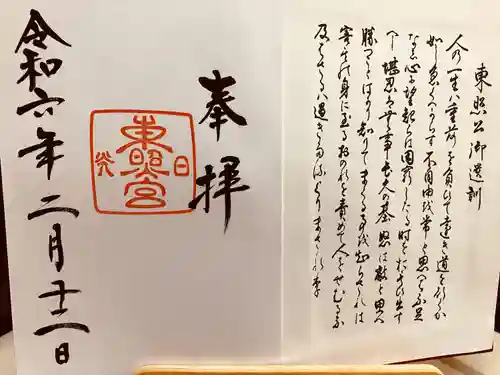 東照公御遺訓
人の一生ハ重荷を負ひて遠き道を行くか
如し急くへからす不自由を常と思へハ不足
なし心に望起らは困窮したる時を思ひ出す
へし堪忍は無事長久の基怒は敵と思へ
勝つことはかり知りてまくる事を知らされは
害其の身に至るおのれを責めて人をせむるな
及はさるハ過きたるよりまされり
奉拝
日光
東照宮
令和六年二月十二日